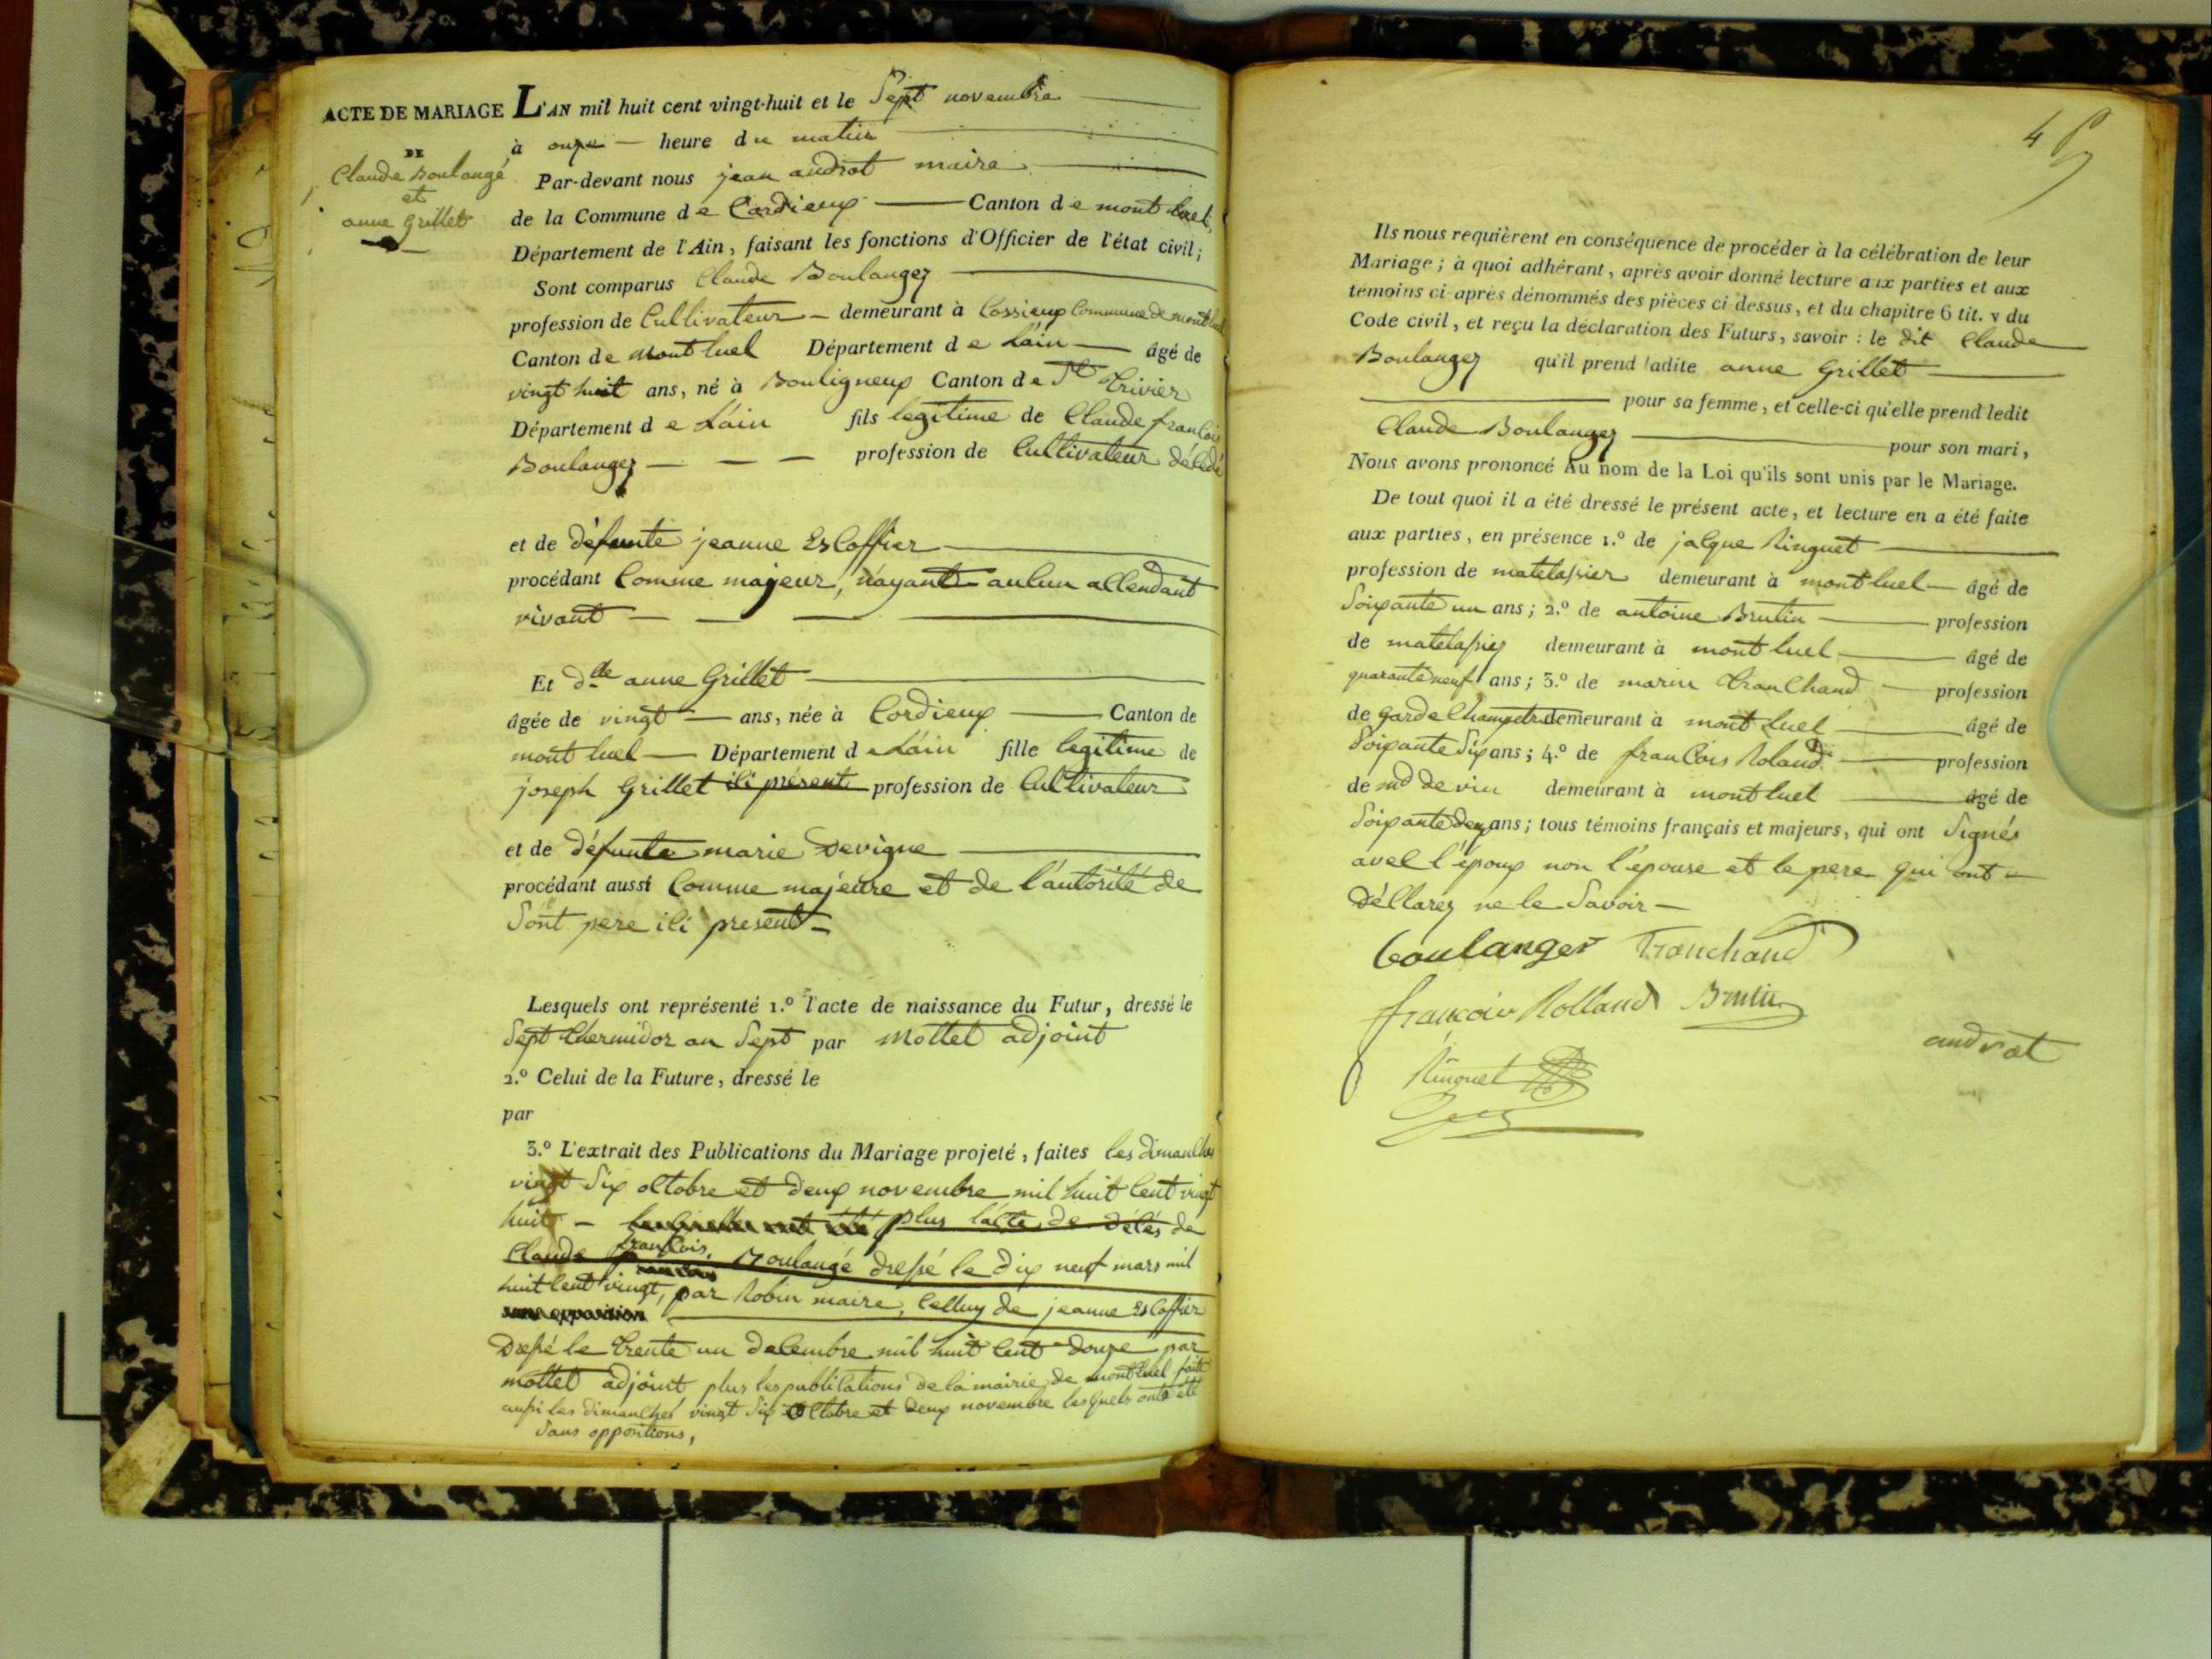 ACTE DE MARIAGE
DE
Claude Boulangé
et
anne Grillet
L'AN mil huit cent vingt-huit et le Sept novembre
à onze heure du matin
Par-devant nous jean androt maire
de la Commune de Cordieux Canton de mont luel
Département de l'Ain, faisant les fonctions d'Officier de l'état civil;
Sont comparus Claude Boulanger
profession de Cultivateur demeurant à Cossieux Commune de montluel
Canton de mont luel Département de Lain âgé de
vingt huit ans, né à Bouligneux Canton de St Trivier
Département de Lain fils legitime de Claude francois
Boulanger profession de Cultivateur décédé
et de défunte jeanne Escoffier
procédant Comme majeur, n'ayant aucun accendant
vivant
Et dlle anne Grillet
âgée de vingt ans, née à Cordieux Canton de
mont luel Département de Lain fille legitime de
joseph Grillet ici présent profession de Cultivateur
et de défunte marie Devigne
procédant aussi Comme majeure et de l'autorité de
Sont pere ici present
Lesquels ont représenté 1.º l'acte de naissance du Futur, dressé le
Sept thermidor an Sept par Mottet adjoint
2.º Celui de la Future, dressé le
par
3.º L'extrait des Publications du Mariage projeté, faites les dimanches
vingt Six octobre et deux novembre mil huit Cent vingt
huit plus l'acte de décés de
Claude francois Boulangé dressé le dix neuf mars mil
huit cent vingt, par Robin maire, Celluy de jeanne Escoffier
Dressé le trente un decembre mil huit Cent douze par
mottet adjoint plus les publications de la mairie de montluel faite
aussi les dimanches vingt Six octobre et deux novembre lesquels onts été
Sans oppositions,
4
Ils nous requièrent en conséquence de procéder à la célébration de leur
Mariage; à quoi adhérant, après avoir donné lecture aux parties et aux
témoins ci-après dénommés des pièces ci-dessus, et du chapitre 6 tit. v du
Code civil, et reçu la déclaration des Futurs, savoir: le dit Claude
Boulanger qu'il prend ladite anne Grillet
pour sa femme, et celle-ci qu'elle prend ledit
Claude Boulanger pour son mari,
Nous avons prononcé Au nom de la Loi qu'ils sont unis par le Mariage.
De tout quoi il a été dressé le présent acte, et lecture en a été faite
aux parties, en présence 1.º de jacque Ringuet
profession de matelassier demeurant à mont luel âgé de
Soixante un ans; 2.º de antoine Brutin profession
de matelassier demeurant à mont luel âgé de
quarante neuf ans; 3.º de marin tranchand profession
de garde Champetre demeurant à mont Luel âgé de
Soixante Six ans; 4.º de francois Roland profession
de md de vin demeurant à mont luel âgé de
Soixante deux ans; tous témoins français et majeurs, qui ont Signés
avec l'époux non l'épouse et le pere qui ont
déclarez ne le Savoir
boulanger Tranchand
françois Rolland Brutin
androt
Ringuet